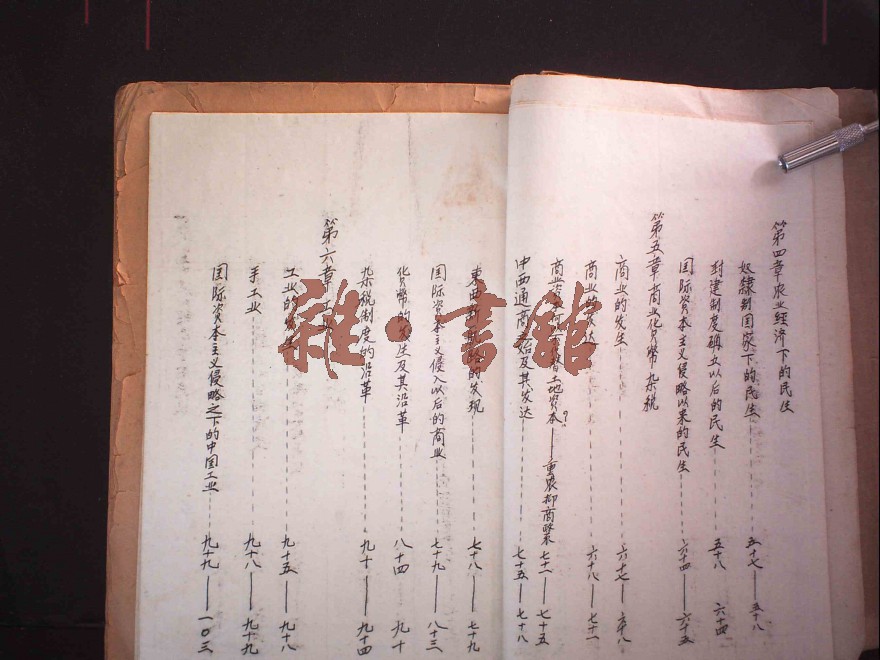 第四章农业经济下的民生
奴隸制国家下的民生 五十七——五十八
封建制度确立以后的民生 五十八 六十四
国际资本主义侵略以来的民生 六十四——六十五
第五章商业化貨幣杂税
商业的发生 六十七——六十八
商业的发达 六十八——七十一
商业 土地资本？——重农抑商政策 七十一——七十五
中西通商 始及其发达 七十五——七十八
東西新 的发现 七十八——七十九
国际资本主义侵入以后的商业 七十九——八十三
貨幣的发生及其沿革 八十四 九十
杂税制度的沿革 九十——九十四
第六章工业
工业的发生 九十五——九十八
手工业 九十八——九十九
国际资本主义侵略之下的中国工业 九十九——一〇三
雜·書館